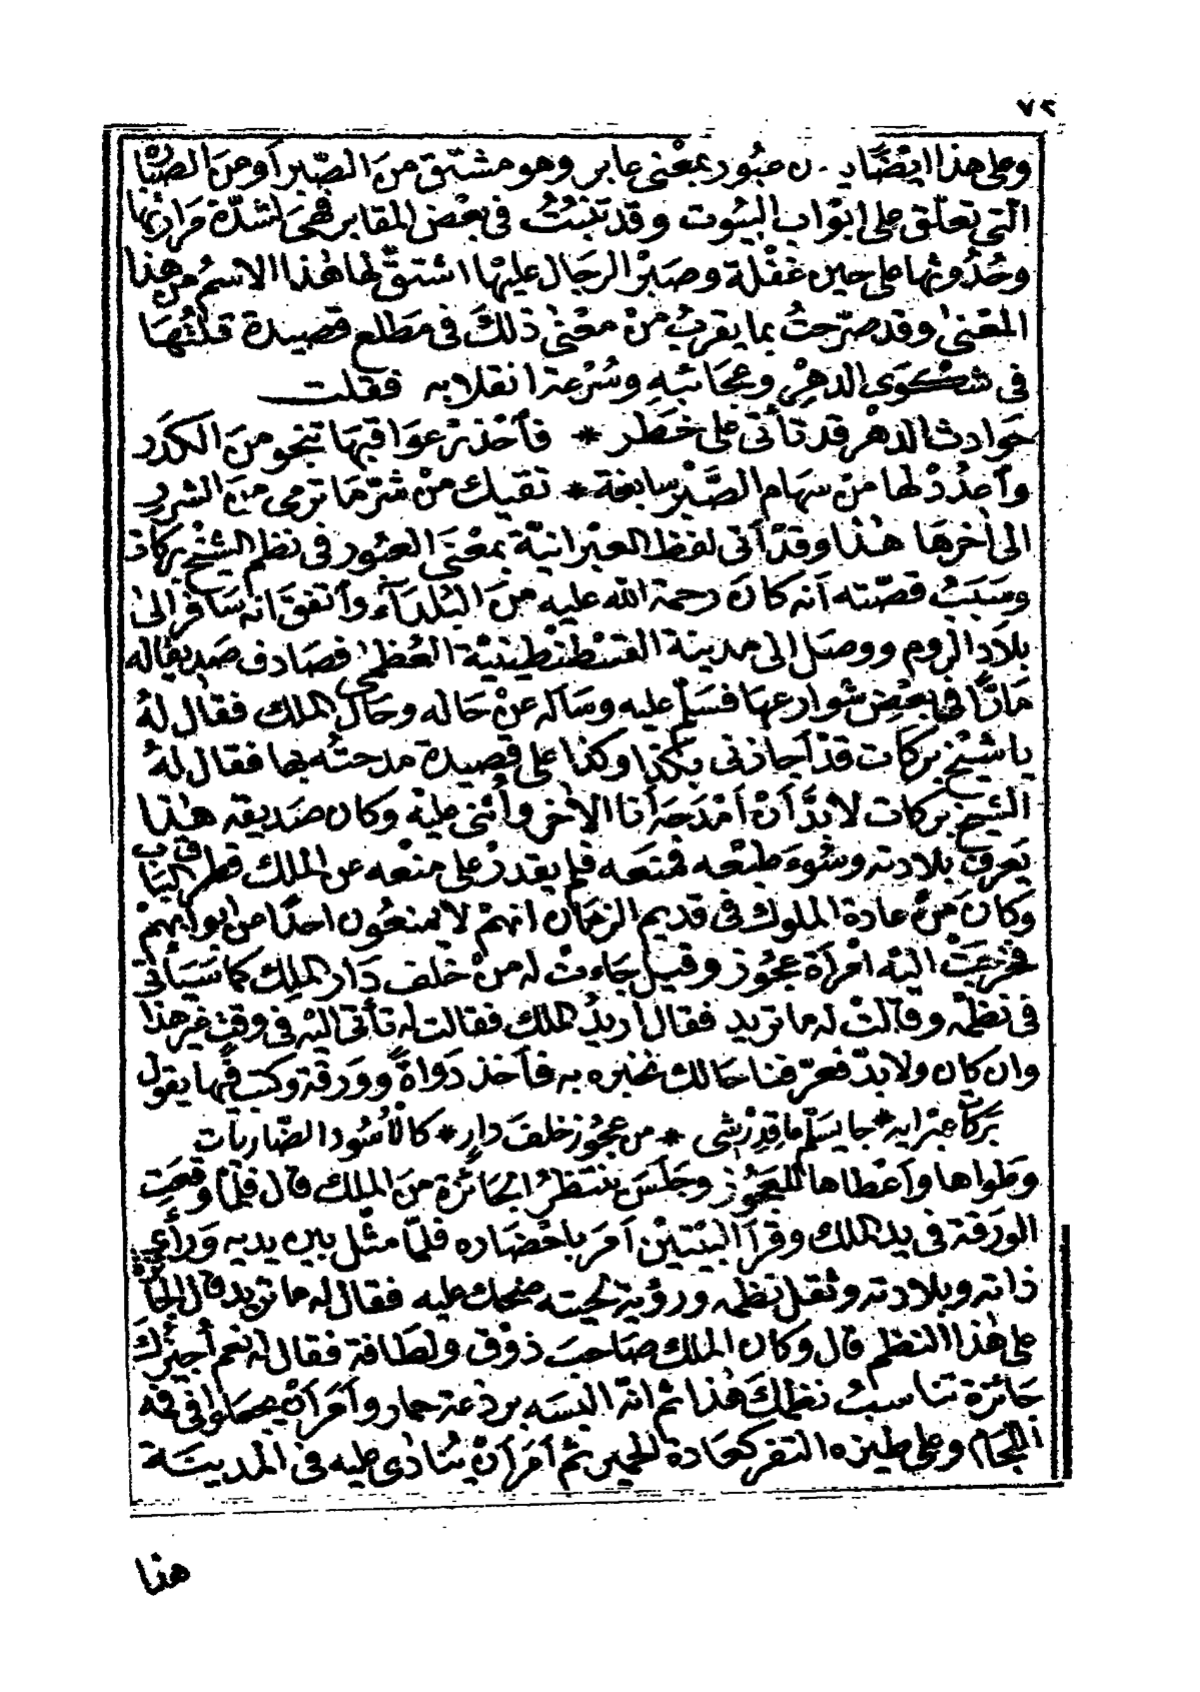 ٧٢
وعلى هذا ايضًا صبُور بمعْنى عابر وهو مشتق منَ الصّبر أو منَ الصبّارة
الّتى تعلّق على ابوَاب البيُوت وقد تنبُتُ فى بعْض المقابر فهىَ لشدّة مرارتها
وحُدُوثها على حين غفْلة وصَبْر الرجَال عليهَا اشتقّ لها هٰذا الاسمُ من هذا
المعْنىٰ وقد صرّحتُ بما يقربُ منْ معْنىٰ ذلكَ فى مَطْلع قصيدة قلتُهَا
فى شكْوَى الدهْرِ وعجَائبهِ وسُرْعة انقلابه فقلت
حَوادث الدهْر قد تأتى على خطَر * فأحْذرْ عوَاقبهَا تنجو منَ الكدَر
وأعدُدْ لها منْ سهَام الصَّبْر سابغة * تقيك منْ شرّ ما ترمى منَ الشرر
الى آخرهَا هٰذا وقدْ أتى لفظ العبْرانيّة بمعْنَى العبُور فى نظم الشيْخ بركات
وسَبَبُ قصّته أنه كانَ رحمة الله عليه منَ البُلدَآء وأتفقَ انه سَافرَ الىٰ
بلَادِ الروم ووصَل الى مدينة القسْطنْطينيّة العُظمىٰ فصَادفَ صَديقًا له
مَارًّا فى بعْضِ شوارعهَا فسَلّم عليه وسَأله عنْ حَاله وحَال الملك فقال لهُ
يا شيْخ بركَات قدْ أجاذنى بكذا وكذا على قصيدة مدحتُه بها فقال لهُ
الشيخ بركات لابدَّ أنْ أمْدَحَه أنا الآخر وأثْنى عليْه وكان صَديقه هٰذا
يَعرفُ بلادته وسُوءَ طبْعه فمنعَه فلم يقدرْ على منْعه عن الملك فطرقَ البَابَ
وكانَ منْ عادة الملوك فى قديم الزمَان انهمْ لا يمنعُون احدًا من ابوابهمْ
فخرجَتْ اليْه امْرأة عجُوز وقيلَ جاءتْ له منْ خلْف دَار الملِك كما سَيأتى
فى نظمْه وقالتْ له ما تريد فقال أريدُ الملك فقالت له تأتى اليْه فى وقتٍ غيْر هذا
وان كان ولابدّ فعرّفنا حَالك نخبره به فأخذ دَواةً وورَقة وكتب فيها يقول
بَركات عبرانيه * جا يسَلّم ما قِدِرْشى * من عجُوز خلفَ دارٍ * كالْأسُود الضّاربات
وطواها وأعْطاها للعجُوز وجلَسَ ينتظرُ الجَائزة منَ الملك قال فلمّا وقعَت
الورَقة فى يد الملك وقرأ البَيْتيْن أمَر بإحْضَاره فلمّا مثْل بين يديه وَرأى
ذاته وبلادته وثقل نظمه ورؤية لحيته ضحك عليه فقال له ما تريد قال الجائزة
على هٰذا النظم قال وكان الملك صَاحبَ ذوْق ولطَافة فقال له نعم أُجيزُكَ
جَائزة تناسبُ نظمكَ هٰذا ثم انّه البسَه برْذعة حمار وأمَر أنْ يجعلوا فى فمه
اللجَام وعلى طيزه التفر كعَادة الحمير ثم أمَر أنْ يُنَادى عليه فى المدينَة
هذا